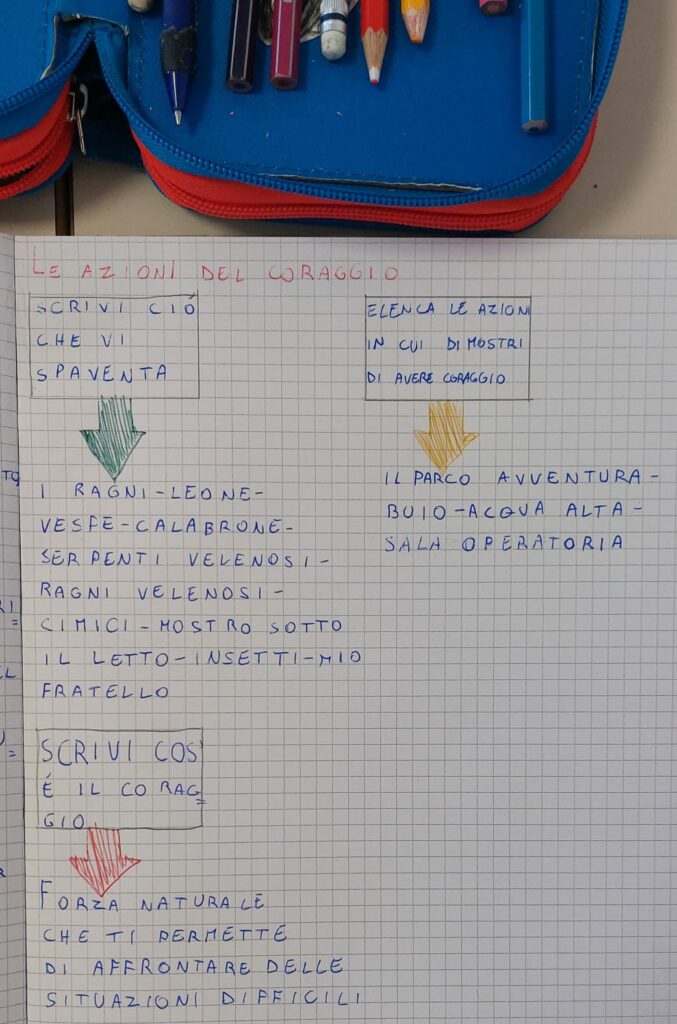 LE AZIONI DEL CORAGGIO
SCRIVI CIÓ
CHE VI
SPAVENTA
I RAGNI-LEONE-
VESPE-CALABRONE-
SERPENTI VELENOSI-
RAGNI VELENOSI-
CIMICI-MOSTRO SOTTO
IL LETTO-INSETTI-MIO
FRATELLO
ELENCA LE AZIONI
IN CUI DIMOSTRI
DI AVERE CORAGGIO
IL PARCO AVVENTURA-
BUIO-ACQUA ALTA-
SALA OPERATORIA
SCRIVI COS'
É IL CORAG=
GIO
FORZA NATURALE
CHE TI PERMETTE
DI AFFRONTARE DELLE
SITUAZIONI DIFFICILI